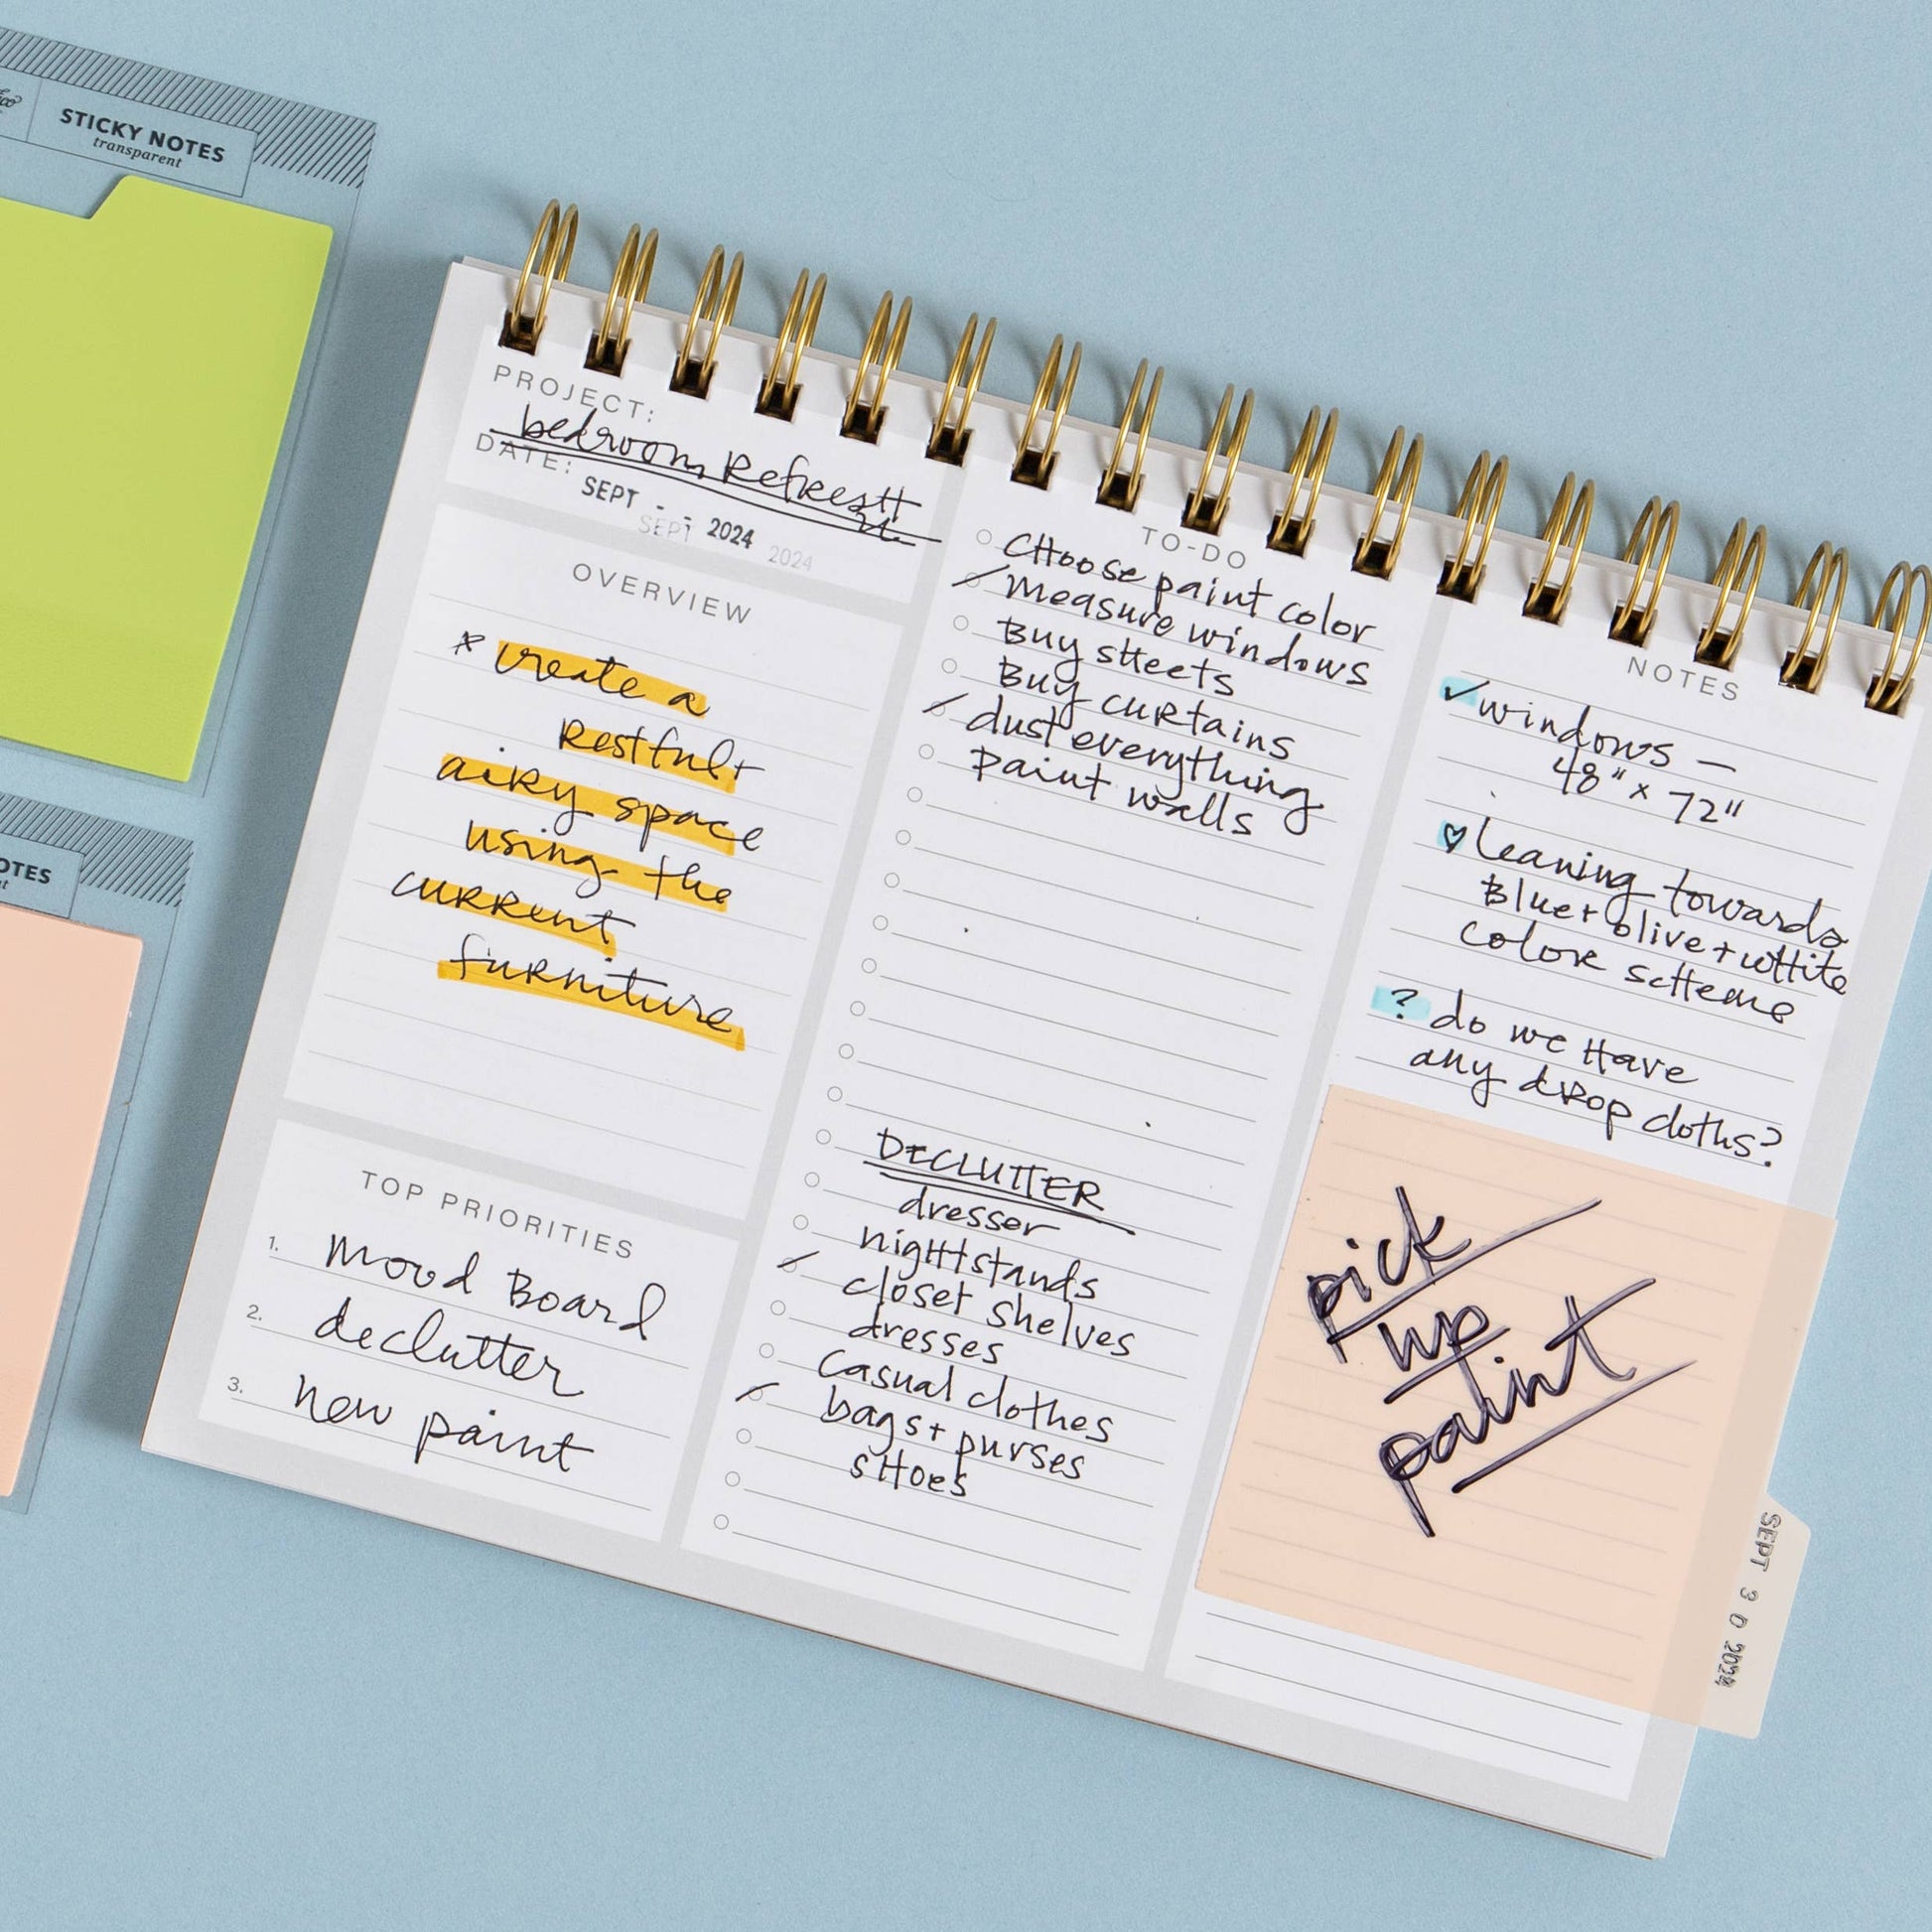 STICKY NOTES
transparent
OTES
PROJECT:
bedroom Refresh
DATE:
SEPT - - 2024
SEPT 2024
OVERVIEW
* create a
restful +
airy space
using the
current
furniture
TOP PRIORITIES
1. Mood Board
2. declutter
3. new paint
TO-DO
Choose paint color
Measure windows
Buy sheets
Buy curtains
dust everything
Paint walls
DECLUTTER
dresser
nightstands
closet shelves
dresses
casual clothes
bags + purses
shoes
NOTES
✓ windows —
48" x 72"
♡ leaning towards
Blue + olive + white
color scheme
? do we have
any drop cloths?
pick
up
paint
SEPT 30 2024